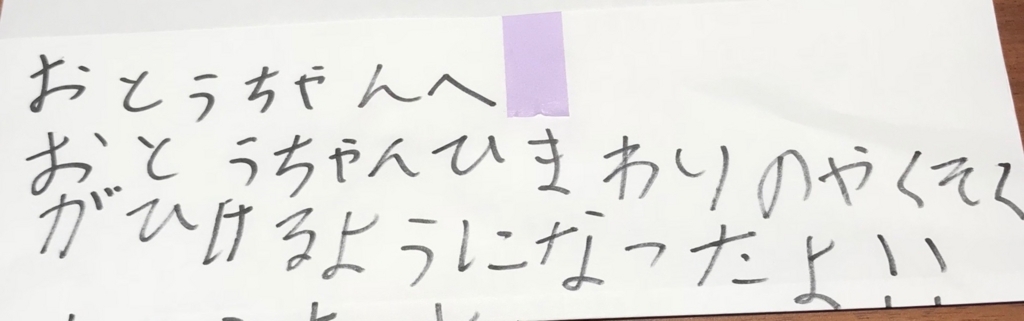 おとうちゃんへ
おとうちゃんひまわりのやくそく
がひけるようになったよ!!